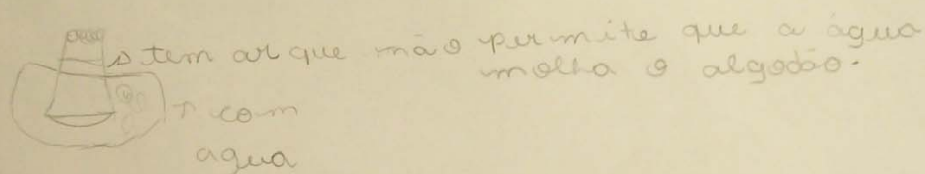 tem ar que não permite que a água
molha o algodão.
com
agua